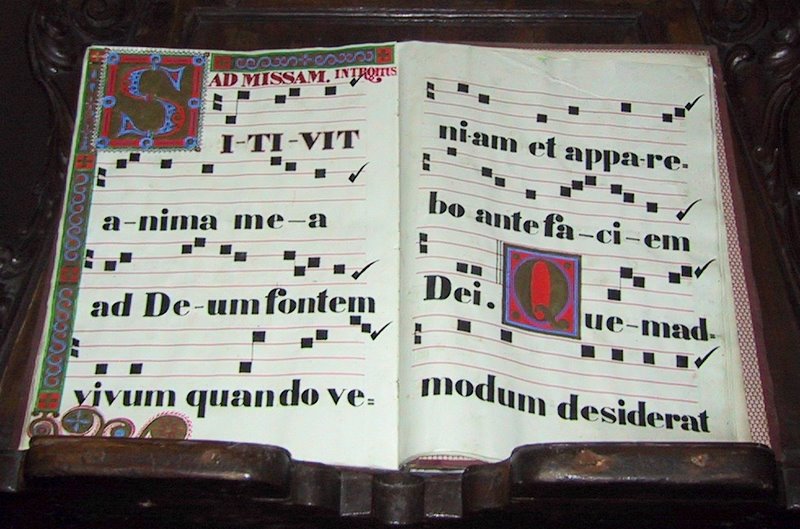 AD MISSAM. INTROITUS
SI-TI-VIT
a-nima me-a
ad De-um fontem
vivum quando ve=
ni-am et appa-re=
bo ante fa-ci-em
Dei. Que-mad=
modum desiderat